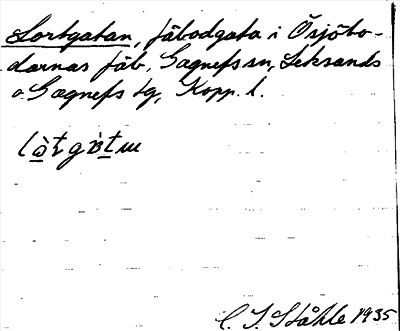 Lortgatan, fäbodgata i Ösjöbo-
darnas fäb, Gagnefs sn, Leksands
o. Gagnefs tg, Kopp. l.
C. I. Ståhle 1935